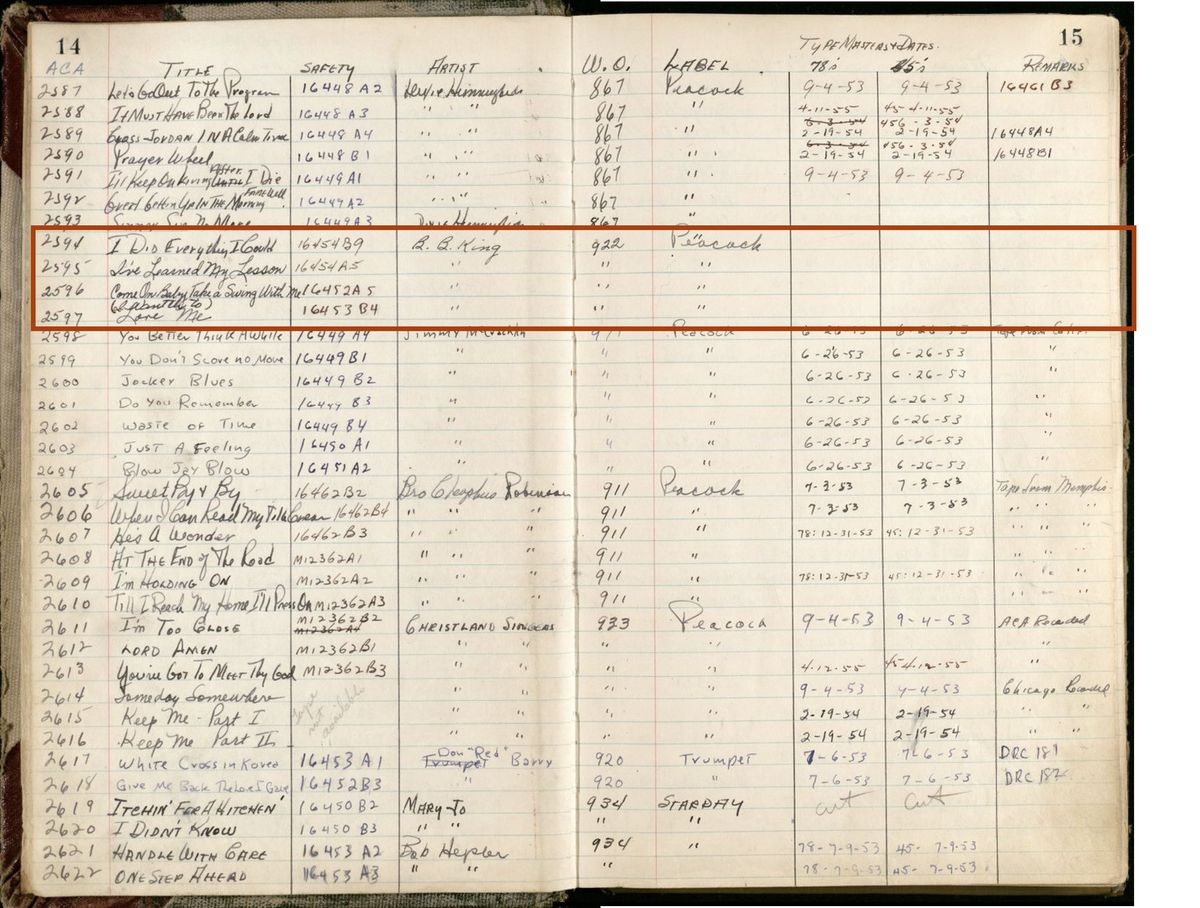 14 15
TYPE MASTERS & DATES.
ACA TITLE SAFETY ARTIST W.O. LABEL 78's 45's REMARKS
2587 Let's Go Out To The Program 16448 A2 867 Peacock 9-4-53 9-4-53 16461 B3
2588 It Must Have Been The Lord 16448 A3 " " 867 " 4-11-55 45-4-11-55
2589 Cross Jordan IN A Calm Time 16448 A4 " " 867 " 2-19-54 2-19-54 16448A4
2590 Prayer Wheel 16448 B1 " " 867 " 2-19-54 2-19-54 16448B1
2591 I'll Keep On Living After I Die 16449 A1 " " 867 " 9-4-53 9-4-53
2592 Great Gettin Up In The Morning Farewell 16449A2 " " 867 "
2593 Sinner Sin No More 16449A3 867
2594 I Did Everything I Could 16454B9 B. B. King 922 Peacock
2595 I've Learned My Lesson 16454A5 " " "
2596 Come On Baby Take a Swing With Me 16452A5 " " "
2597 (I want you to) Love Me 16453 B4 " " "
2598 You Better Think Awhile 16449 A4 Jimmy 911 Peacock 6-26-53 6-26-53
2599 You Don't Score no More 16449 B1 " " 6-26-53 6-26-53 "
2600 Jocker Blues 16449 B2 " " 6-26-53 6-26-53 "
2601 Do You Remember 16449 B3 " " 6-26-53 6-26-53 "
2602 Waste of Time 16449 B4 " " 6-26-53 6-26-53 "
2603 Just A Feeling 16450 A1 " " 6-26-53 6-26-53 "
2604 Blow Jay Blow 16451 A2 " " 6-26-53 6-26-53 "
2605 Sweet By & By 16462B2 Bro Cleophus Robinson 911 Peacock 7-3-53 7-3-53 Tape from Memphis
2606 When I Can Read My Title Clear 16462B4 " " " 911 " 7-3-53 7-3-53 " " "
2607 He's A Wonder 16462B3 " " " 911 " 78:12-31-53 45:12-31-53
2608 At The End of The Road M12362A1 " " " 911 " " " "
2609 I'm Holding On M12362A2 " " " 911 " 78:12-31-53 45:12-31-53 " " "
2610 Till I Reach My Home I'll Press On M12362A3 " " " 911 " " " "
2611 I'm Too Close M12362B2 Christland Singers 933 Peacock 9-4-53 9-4-53 ACA Recorded
2612 Lord Amen M12362B1 " " " " "
2613 You've Got To Meet Thy God M12362B3 " " " " 4-12-55 45 4-12-55 "
2614 Someday Somewhere tape not available " " " " 9-4-53 9-4-53 Chicago Recorded
2615 Keep Me - Part I " " " " 2-19-54 2-19-54 " "
2616 Keep Me Part II " " " " 2-19-54 2-19-54
2617 White Cross in Korea 16453 A1 Don "Red" Barry 920 Trumpet 7-6-53 7-6-53 DRC 181
2618 Give Me Back The Love I Gave 16452B3 " 920 " 7-6-53 7-6-53 DRC 182
2619 Itchin' For A Hitchen' 16450 B2 Mary-Jo 934 Starday cut cut
2620 I Didn't Know 16450 B3 " " " "
2621 Handle With Care 16453 A2 Bob Hepler 934 " 78-7-9-53 45-7-9-53
2622 One Step Ahead 16453 A3 " " " 78-7-9-53 45-7-9-53